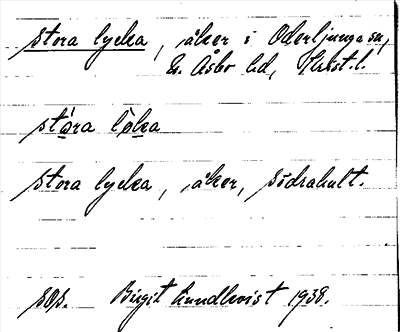 stora lycka, åker i Oderljunga sn,
N. Åsbo hd, Krist. l.
stóra lyka
stora lycka, åker, Södrahult.
sos. Birgit Lundkvist 1938.